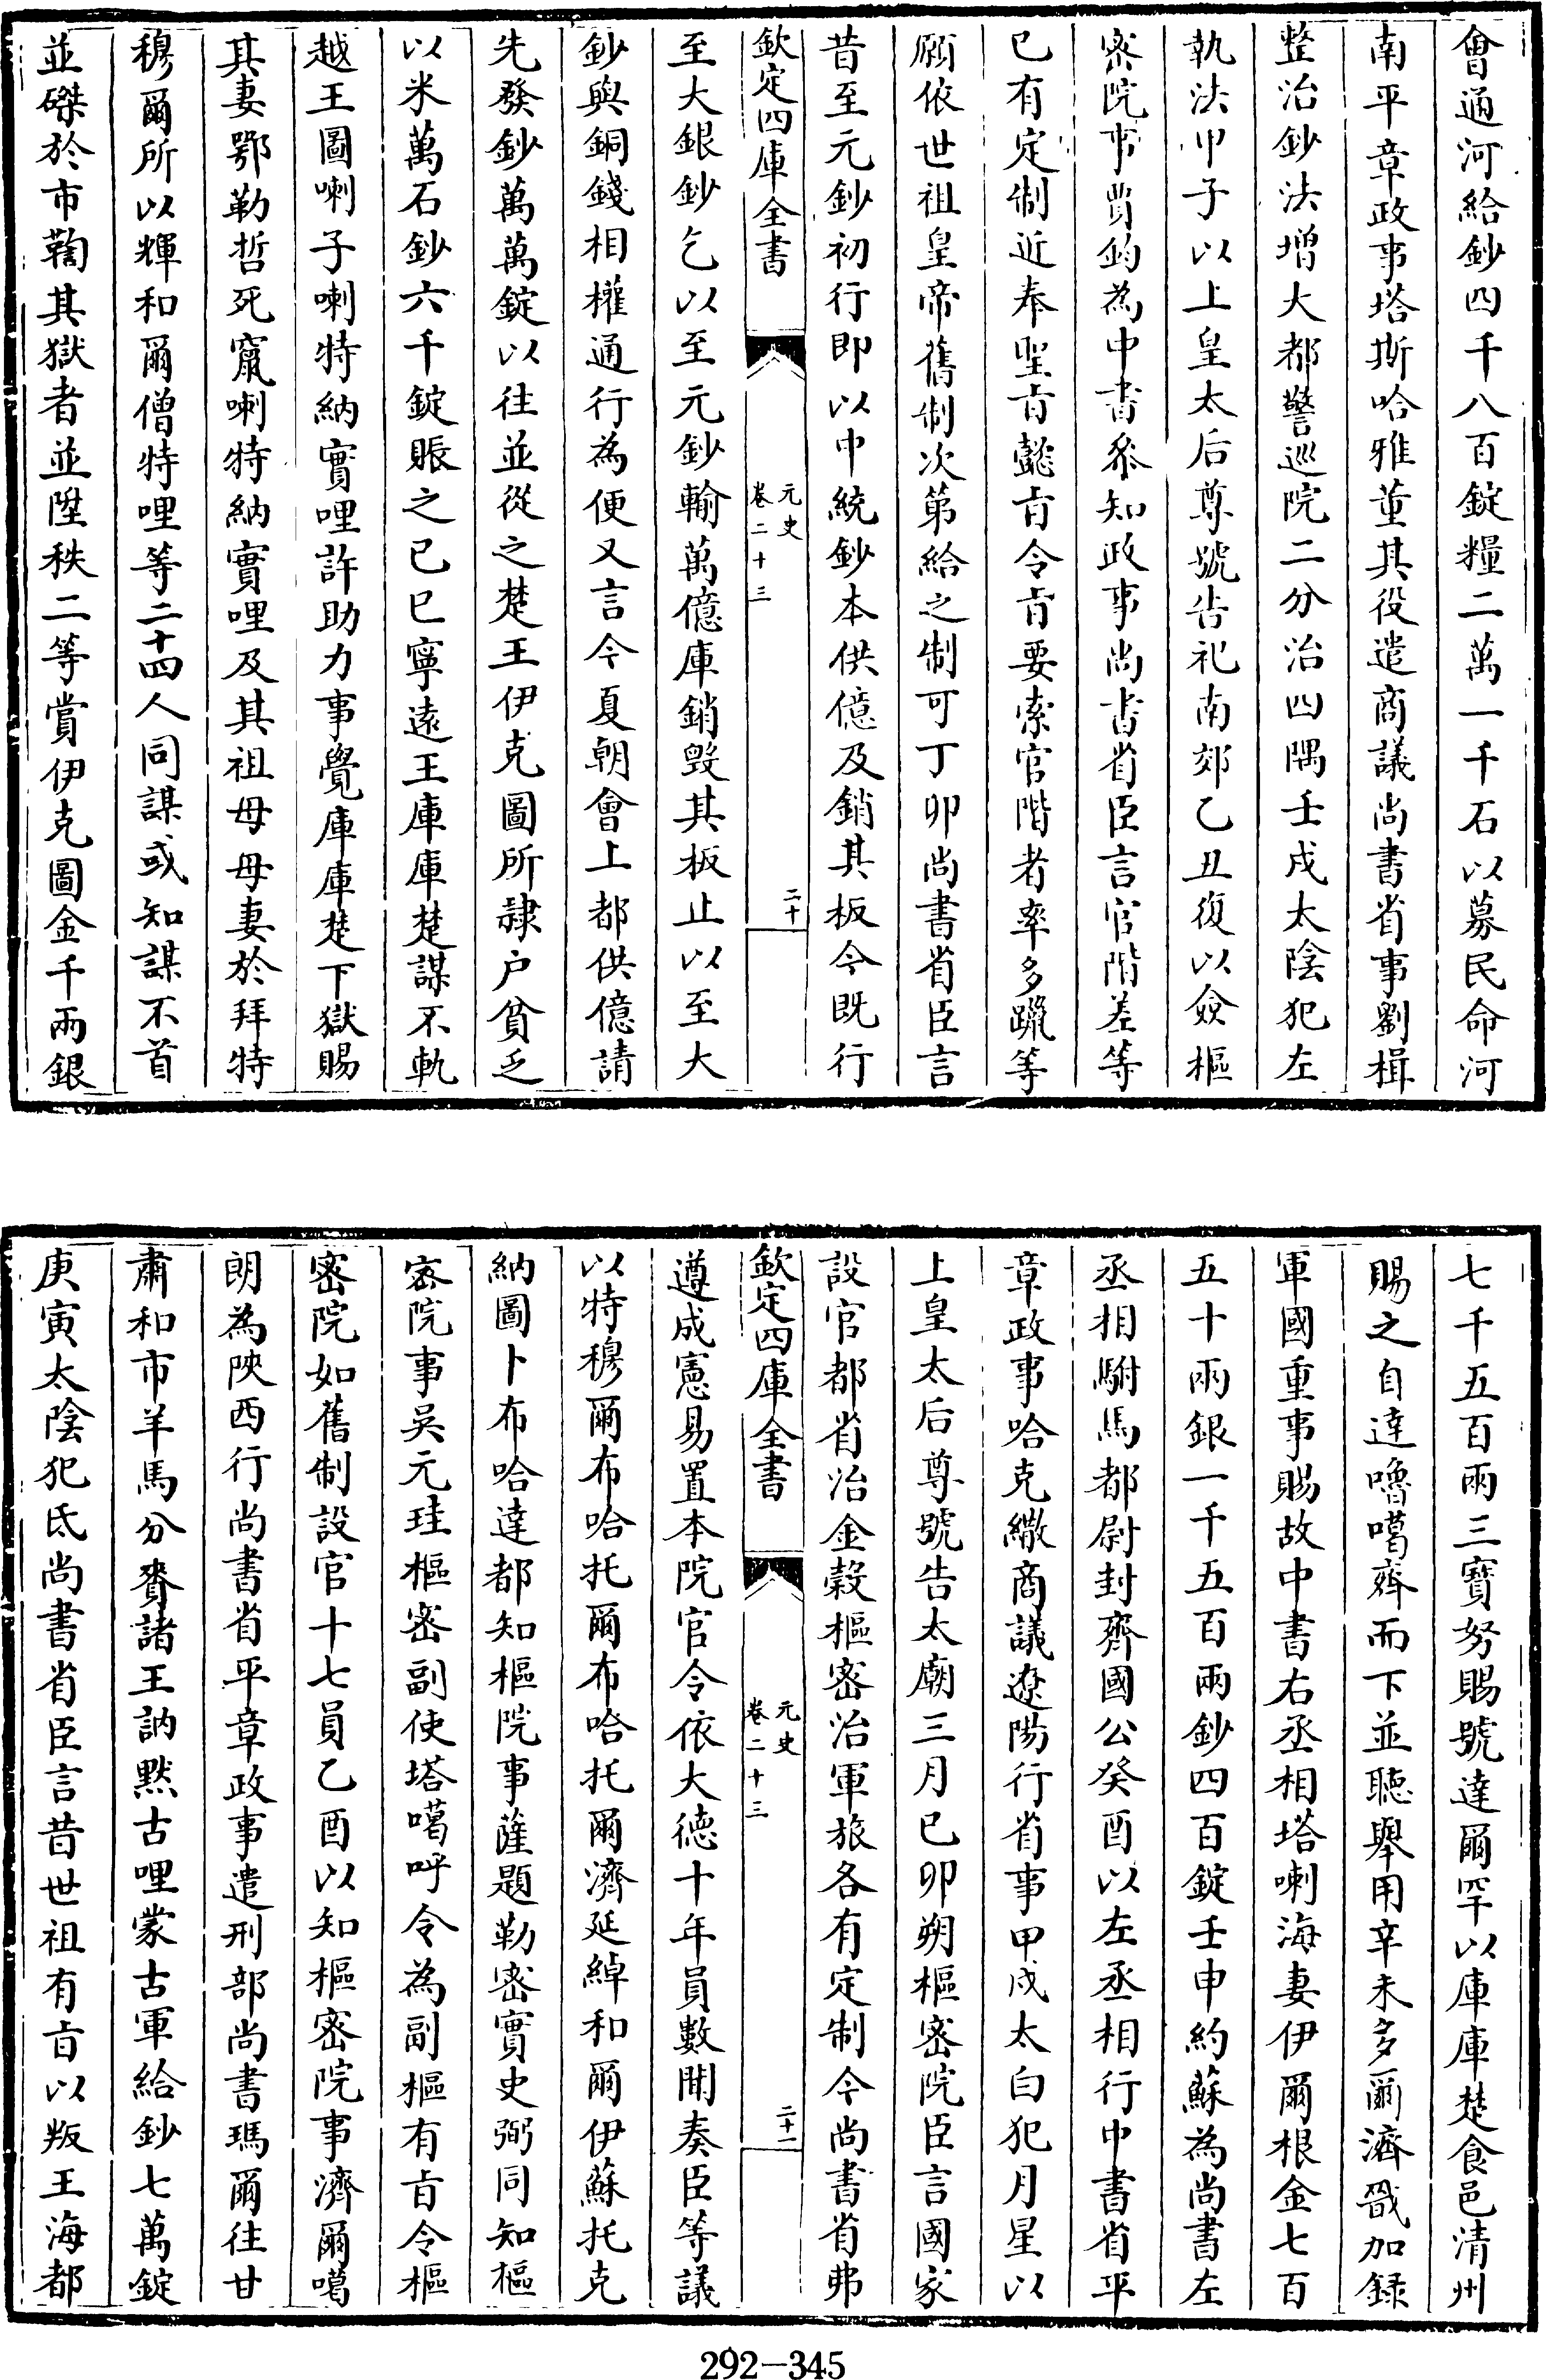 會通河給鈔四千八百錠糧二萬一千石以募民命河
南平章政事塔斯哈雅董其役遣商議尚書省事劉楫
整治鈔法增大都警巡院二分治四隅壬戌太陰犯左
執法甲子以上皇太后尊號告祀南郊乙丑復以僉樞
密院事賈鈞為中書叅知政事尚書省臣言官階差等
已有定制近奉聖旨懿旨令旨要索官階者率多躐等
願依世祖皇帝舊制次第給之制可丁卯尚書省臣言
昔至元鈔初行即以中統鈔本供億及銷其板今既行
欽定四庫全書
元史
卷二十三
二十
至大銀鈔乞以至元鈔輸萬億庫銷毀其板止以至大
鈔與銅錢相權通行為便又言今夏朝會上都供億請
先發鈔萬萬錠以往並從之楚王伊克圖所隸户貧乏
以米萬石鈔六千錠賑之己巳寧遠王庫庫楚謀不軌
越王圖喇子喇特納實哩許助力事覺庫庫楚下獄賜
其妻鄂勒哲死竄喇特納實哩及其祖母母妻於拜特
穆爾所以輝和爾僧特哩等二十四人同謀或知謀不首
並磔於市鞫其獄者並陞秩二等賞伊克圖金千兩銀
七千五百兩三寶努賜號達爾罕以庫庫楚食邑清州
賜之自達嚕噶齊而下並聽舉用辛未多爾濟戩加錄
軍國重事賜故中書右丞相塔喇海妻伊爾根金七百
五十兩銀一千五百兩鈔四百錠壬申約蘇為尚書左
丞相駙馬都尉封齊國公癸酉以左丞相行中書省平
章政事哈克繖商議遼陽行省事甲戌太白犯月星以
上皇太后尊號告太廟三月己卯朔樞密院臣言國家
設官都省治金穀樞密治軍旅各有定制今尚書省弗
欽定四庫全書
元史
卷二十三
二十一
遵成憲易置本院官令依大德十年員數聞奏臣等議
以特穆爾布哈托爾布哈托爾濟延綽和爾伊蘇托克
納圖卜布哈達都知樞院事薩題勒密實史弼同知樞
密院事吳元珪樞密副使塔噶呼令為副樞有旨令樞
密院如舊制設官十七員乙酉以知樞密院事濟爾噶
朗為陜西行尚書省平章政事遣刑部尚書瑪爾往甘
肅和市羊馬分賚諸王訥黙古哩蒙古軍給鈔七萬錠
庚寅太陰犯氐尚書省臣言昔世祖有旨以叛王海都
292-345